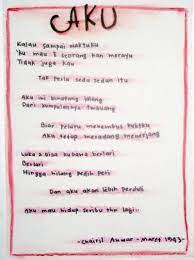 AKU
Kalau sampai waktuku
'Ku mau tak seorang kan merayu
Tidak juga kau
Tak perlu sedu sedan itu
Aku ini binatang jalang
Dari kumpulannya terbuang
Biar peluru menembus kulitku
Aku tetap meradang menerjang
Luka & bisa kubawa berlari
Berlari
Hingga hilang pedih peri
Dan aku akan lebih perduli
Aku mau hidup seribu thn lagi
- Chairil Anwar - Maret 1943 -